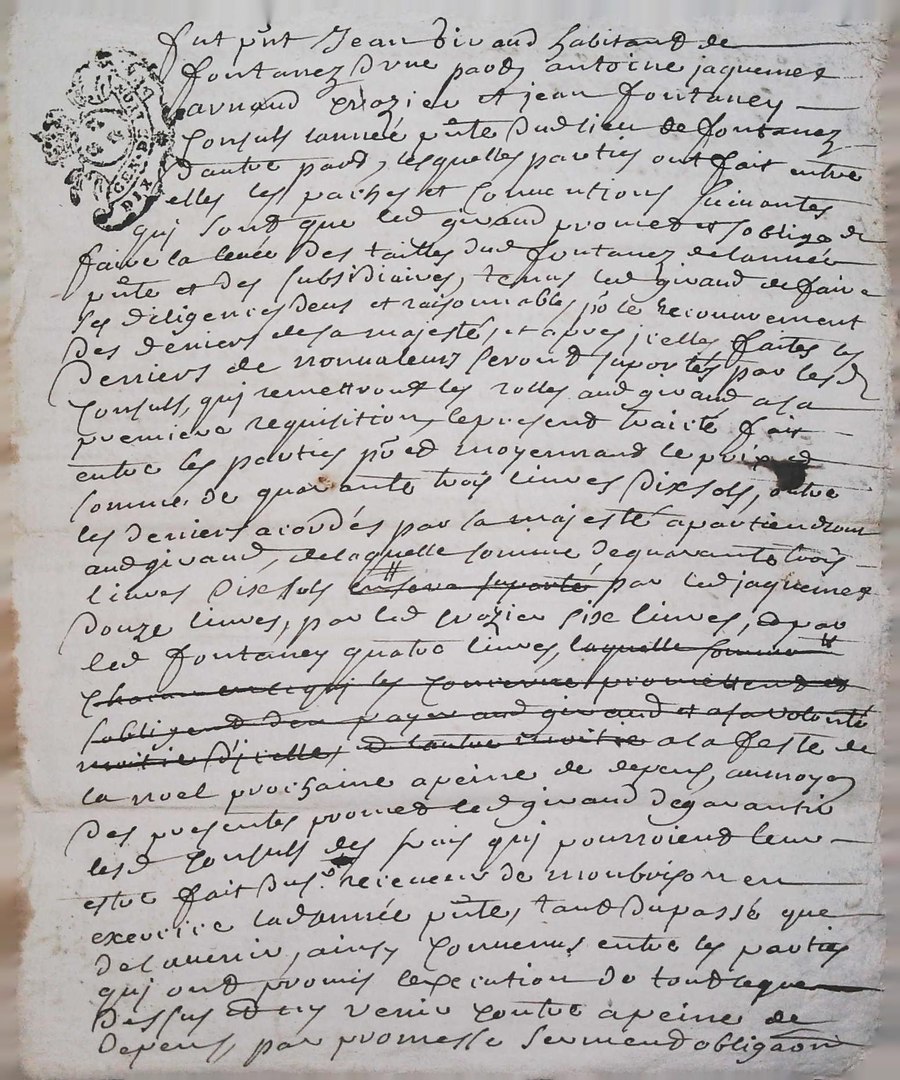 fut pnt Jean Giraud habitand de
fontanez d'une pard, antoine jaquemet
arnaud Crozier et jean fontaney
Consuls lannée pnte dud lieu de fontanez
d'autre pard, lesquelles parties ont fait entre
elles les paches et Conventions suivantes
qui sond que led giraud promet et s'oblige de
faire la levée des tailles dud fontanez de lannée
pnte et des subsidiaires, tenus led giraud de faire
ses diligences deus et raisonnable, po le recouvrement
des deniers de sa majesté, et apres icelles faites les
derniers de nonvaleurs seront suportés par lesd
Consuls, qui remettront les rolles aud giraud a sa
premiere requisition, le present traité fait
entre les parties moyennand le prix et
somme de quarante trois livres dixsols, outre
les deniers acordés par sa majesté apartiendront
aud giraud, de laquelle somme de quarante trois
livres dixsols en sera suporté par led jaquemet
douze livres, par led Crozier six livres, et par
led fontaney quatre livres, laquelle somme
Chacun en ce qui les Concerne promettend et
sobligend den payer aud giraud et a sa volonté
moitie d'icelle, et l'autre moitie a la feste de
la noel prochaine a peine de depens, au moyen
des presentes promet led giraud de garantir
lesd Consuls des frais qui pourroiend leur
estre fait du sr receveur de monbrison en
exercice lad année pnte, tand du passé que
de lavenir, ainsy Convenus entre les parties
qui ond promis lexecution de tond ce que
dessus et ny venir Contre a peine de
depens, par promesse sermend obligaon
GEN DE LYON
DIX